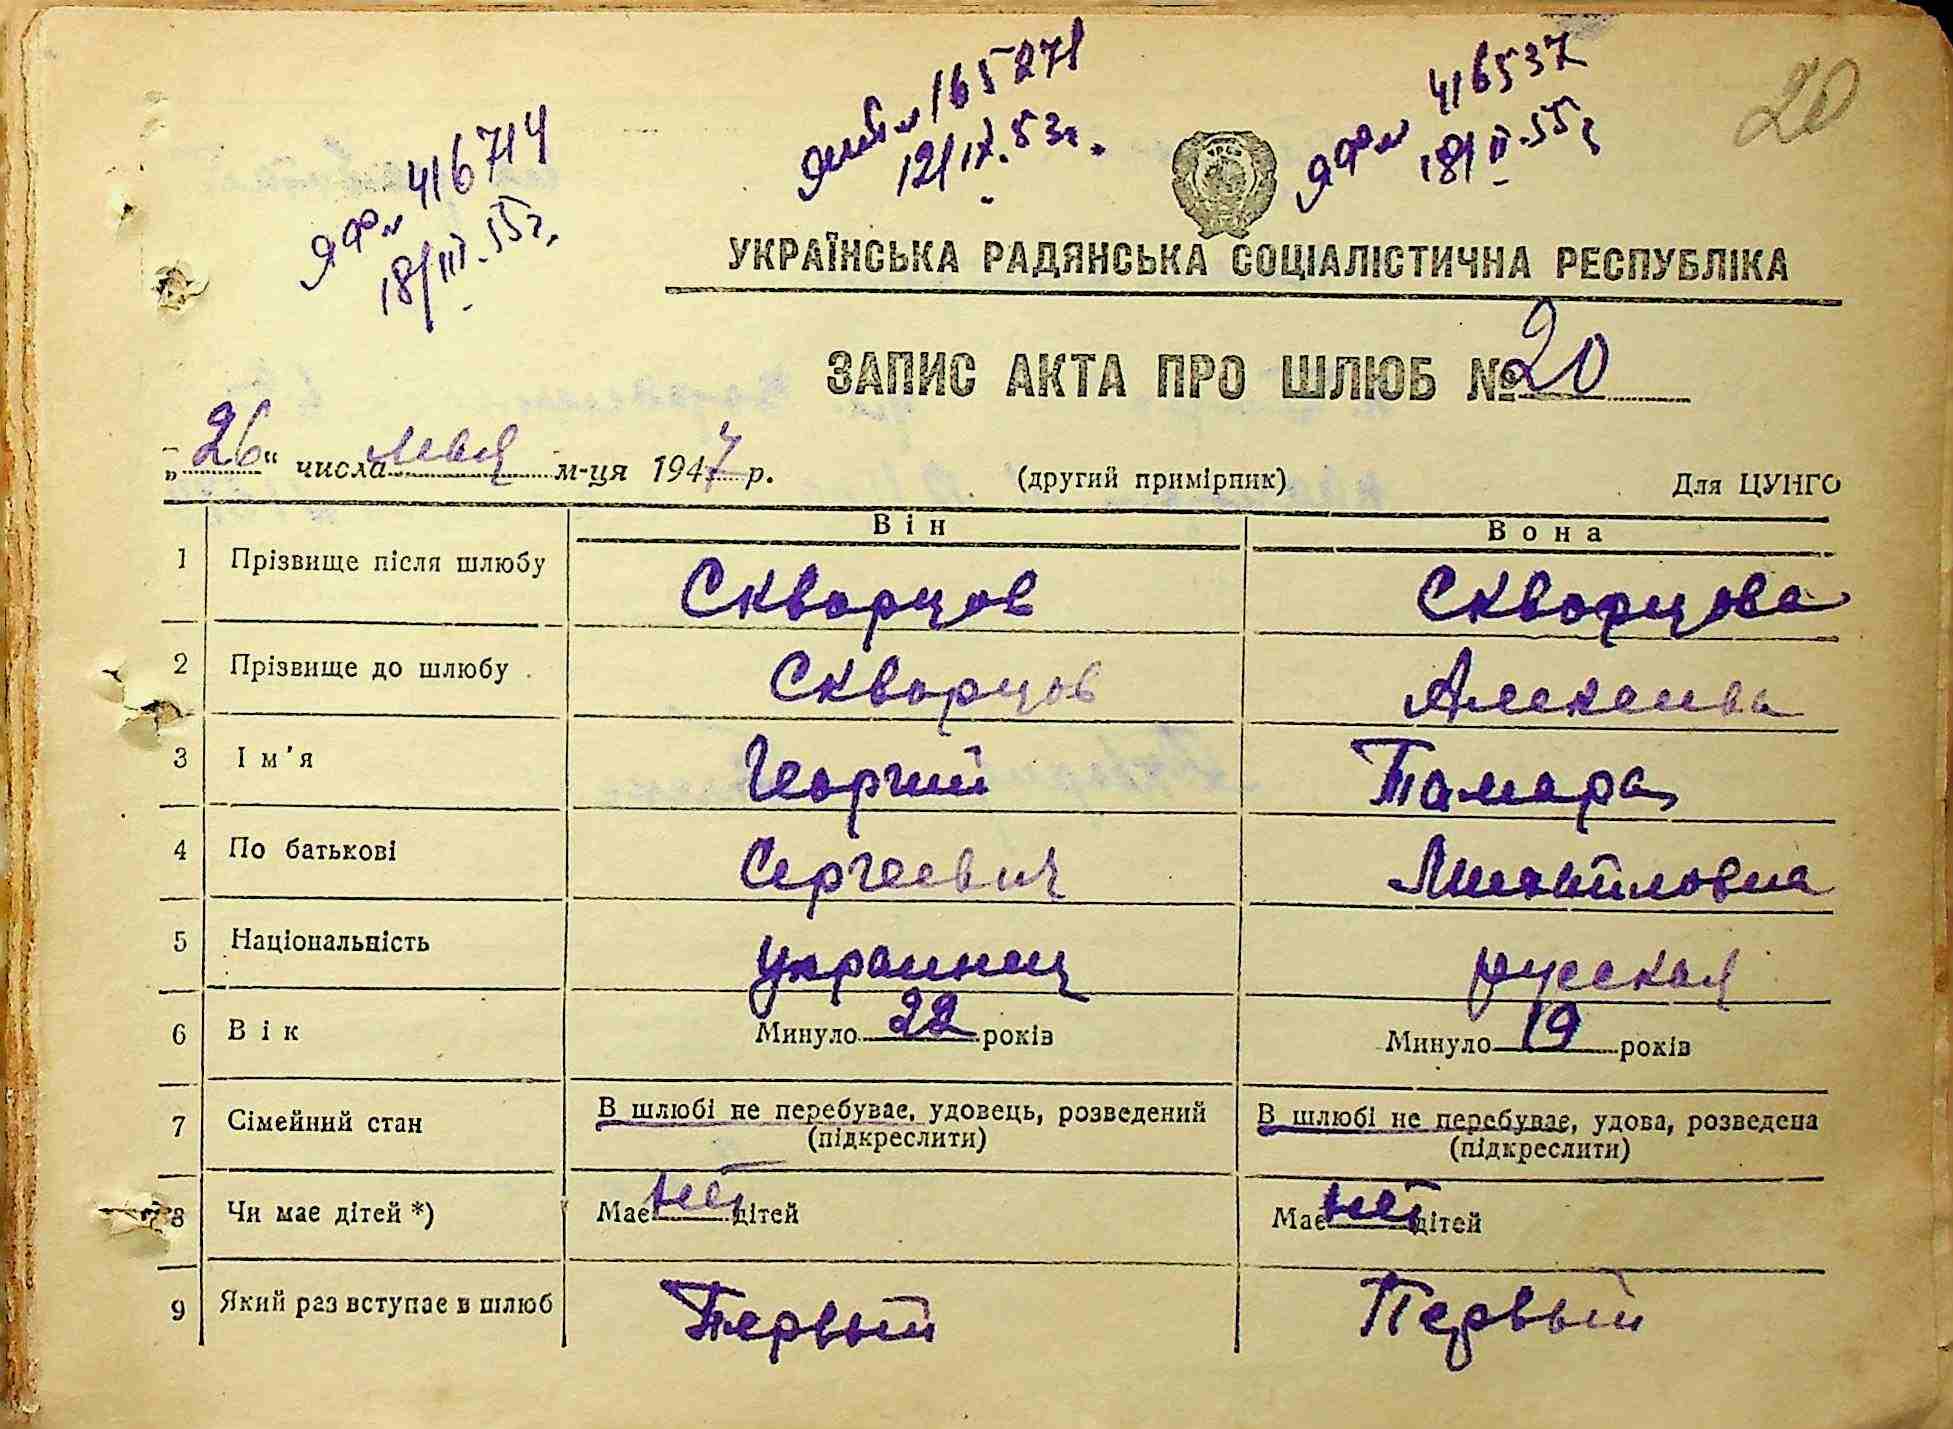 20
416714
18/III.55г.
165271
12/IX.53г.
416537
18/II.55г
УРСР
УКРАЇНСЬКА РАДЯНСЬКА СОЦІАЛІСТИЧНА РЕСПУБЛІКА
ЗАПИС АКТА ПРО ШЛЮБ № 20
„26“ числа мая м-ця 1947 р. (другий примірник) Для ЦУНГО
Він Вона
1 Прізвище після шлюбу Скворцов Скворцова
2 Прізвище до шлюбу Скворцов Алексеева
3 Ім'я Георгий Тамара
4 По батькові Сергеевич Михайловна
5 Національність украинец русская
6 Вік Минуло 22 років Минуло 19 років
7 Сімейний стан В шлюбі не перебуває, удовець, розведений В шлюбі не перебуває, удова, розведена
(підкреслити) (підкреслити)
8 Чи має дітей *) Має нет дітей Має нет дітей
9 Який раз вступає в шлюб Первый Первый